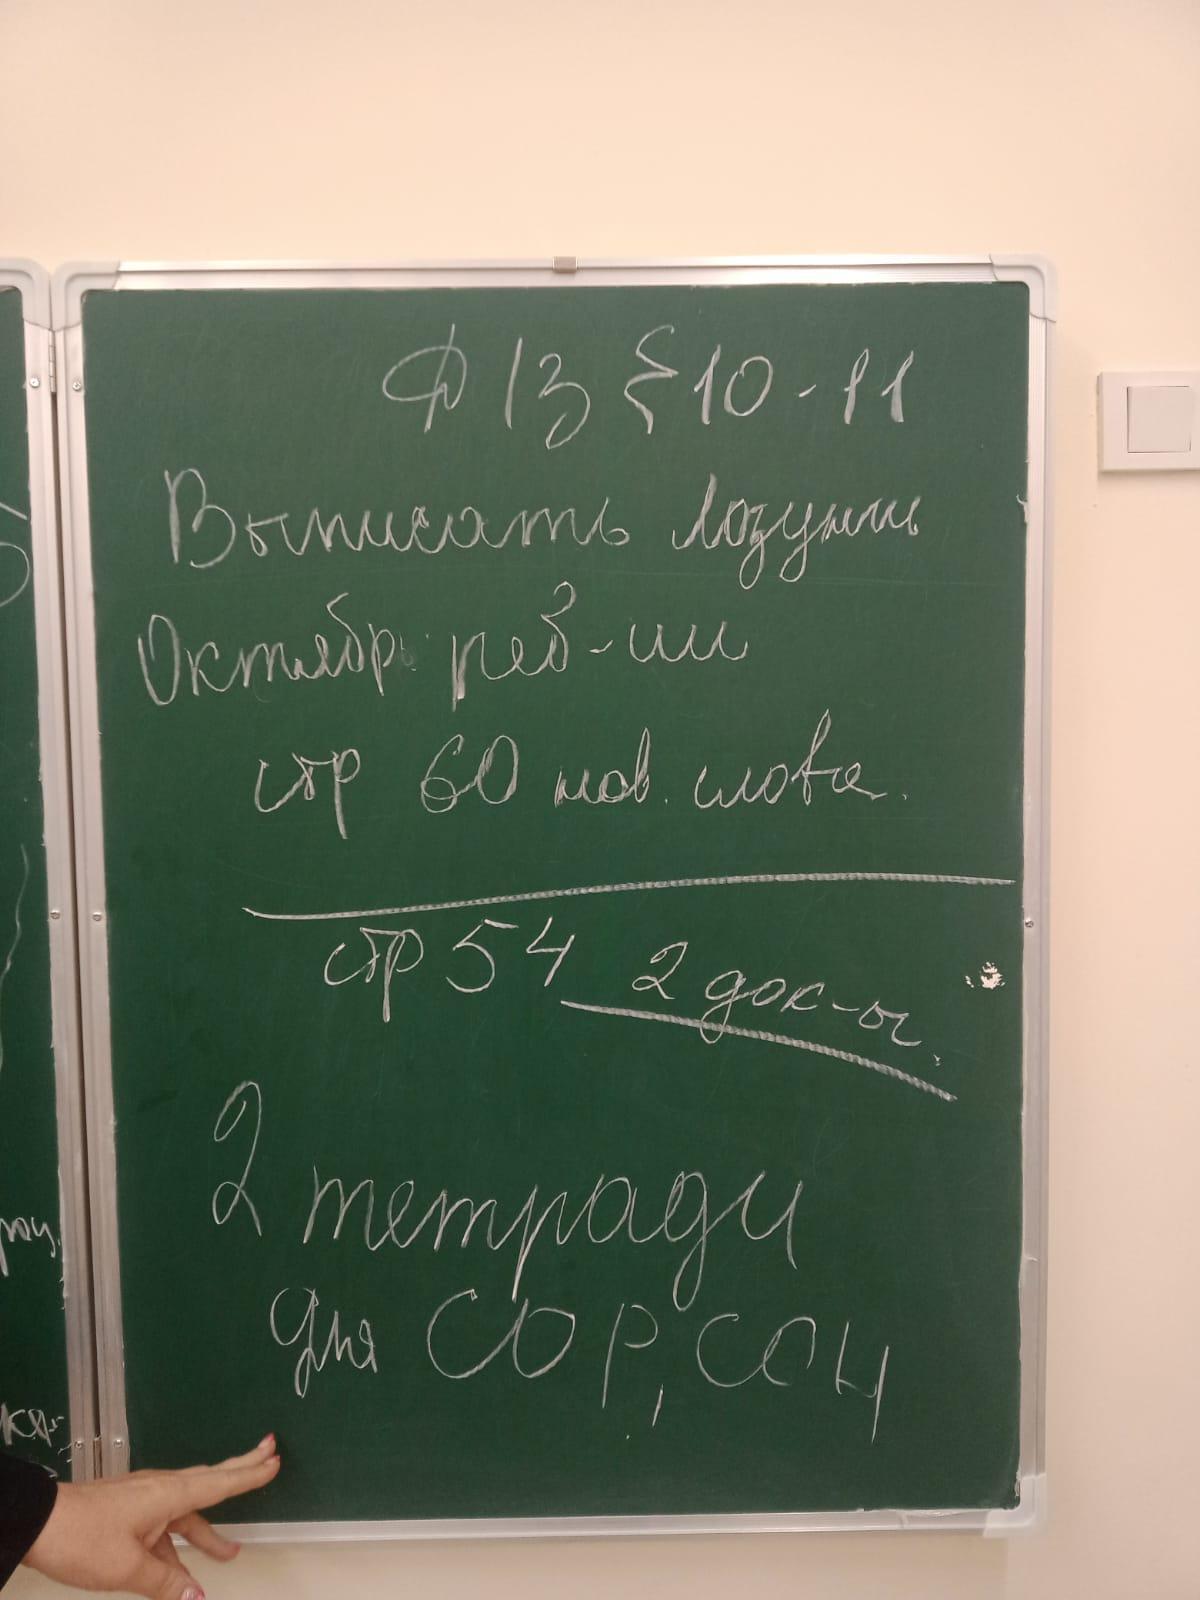 Д/З § 10-11
Выписать лозунги
Октябр. рев-ии
стр 60 нов. слова.
стр 54 2 док-та.
2 тетради
для СОР, СОЧ